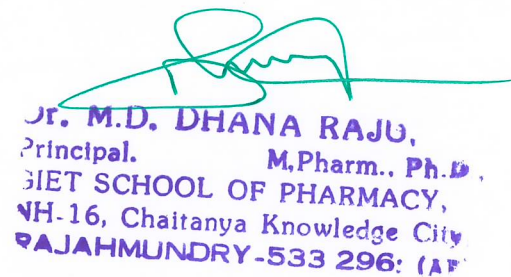 Dr. M.D. DHANA RAJU,
Principal. M.Pharm., Ph.D.,
GIET SCHOOL OF PHARMACY,
NH-16, Chaitanya Knowledge City
RAJAHMUNDRY-533 296: (AP